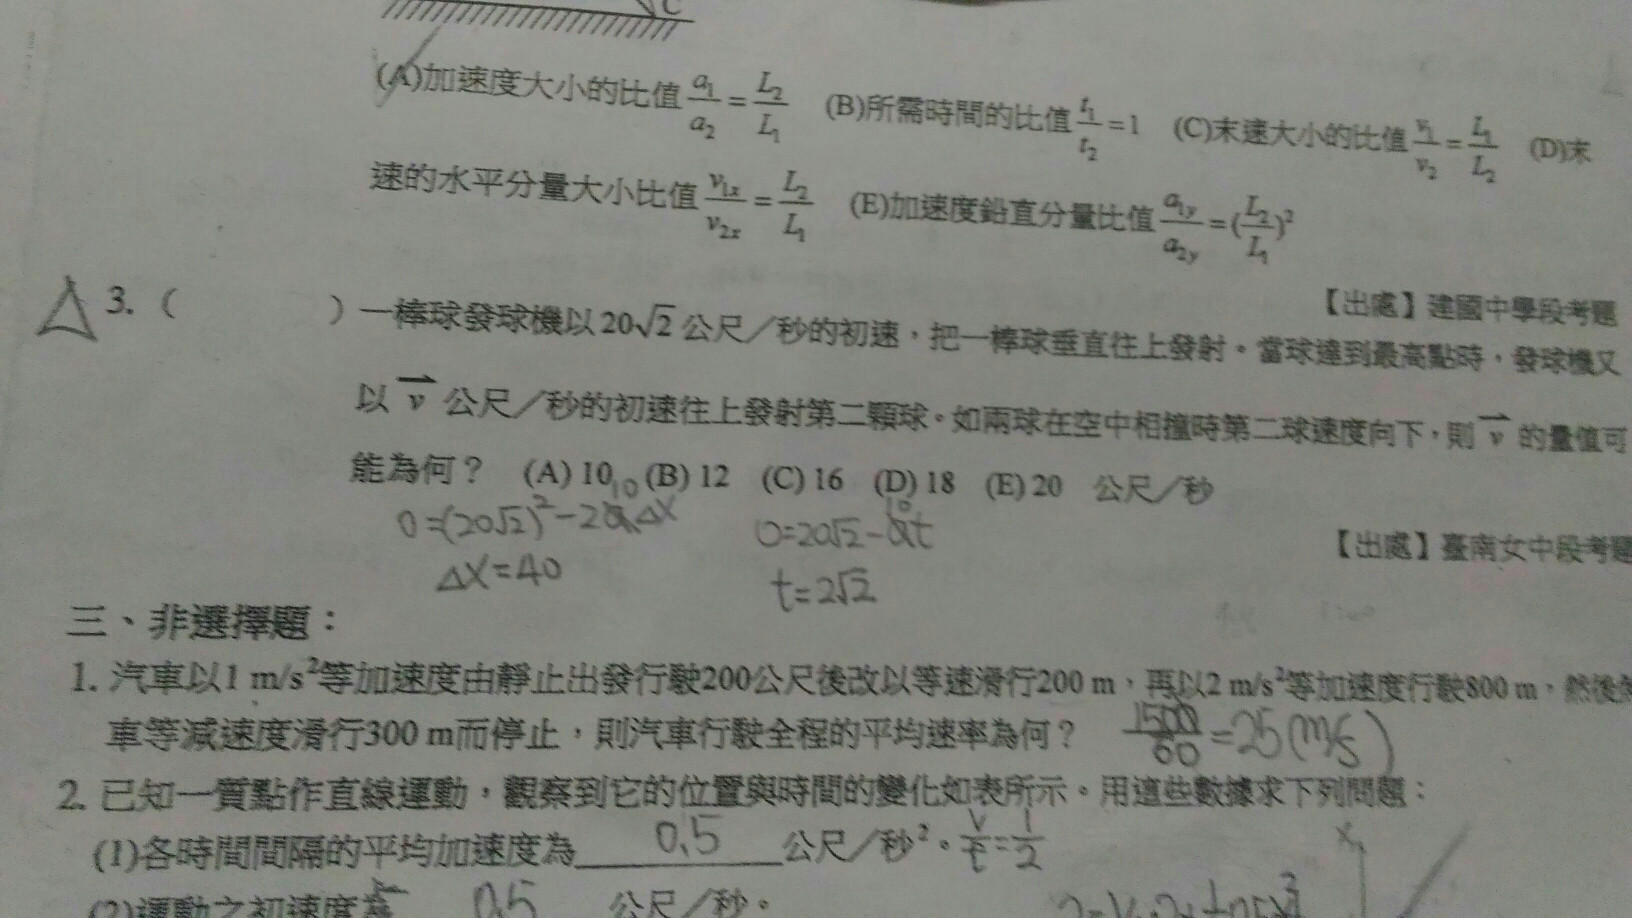 C
(A)加速度大小的比值 a₁/a₂ = L₂/L₁ (B)所需時間的比值 t₁/t₂ =1 (C)末速大小的比值 v₁/v₂ = L₁/L₂ (D)末
速的水平分量大小比值 v₁ₓ/v₂ₓ = L₂/L₁ (E)加速度鉛直分量比值 a₁y/a₂y =(L₂/L₁)²
【出處】建國中學段考題
△ 3. ( )一棒球發球機以 20√2 公尺／秒的初速，把一棒球垂直往上發射。當球達到最高點時，發球機又
以 v⃗ 公尺／秒的初速往上發射第二顆球。如兩球在空中相撞時第二球速度向下，則 v⃗ 的量值可
能為何？ (A) 10 (B) 12 (C) 16 (D) 18 (E) 20 公尺／秒
0=(20√2)²-2 10 Δx 0=20√2- 10 t
【出處】臺南女中段考題
Δx=40 t=2√2
三、非選擇題：
1. 汽車以1 m/s²等加速度由靜止出發行駛200公尺後改以等速滑行200 m，再以2 m/s²等加速度行駛800 m，然後
車等減速度滑行300 m而停止，則汽車行駛全程的平均速率為何？ 1500/60 =25(m/s)
2. 已知一質點作直線運動，觀察到它的位置與時間的變化如表所示。用這些數據求下列問題：
(1)各時間間隔的平均加速度為 0.5 公尺／秒²。 v/t=1/2
(2)運動之初速度為 0.5 公尺／秒。